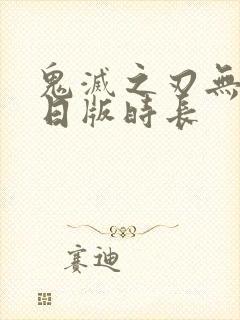 鬼滅之刃無
日版時長
賽迪